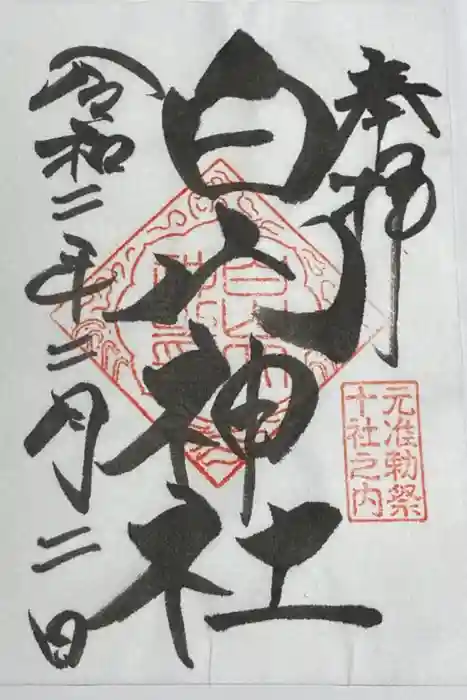 奉拝
元准勅祭
十社之内
白山神社
令和二年二月二日